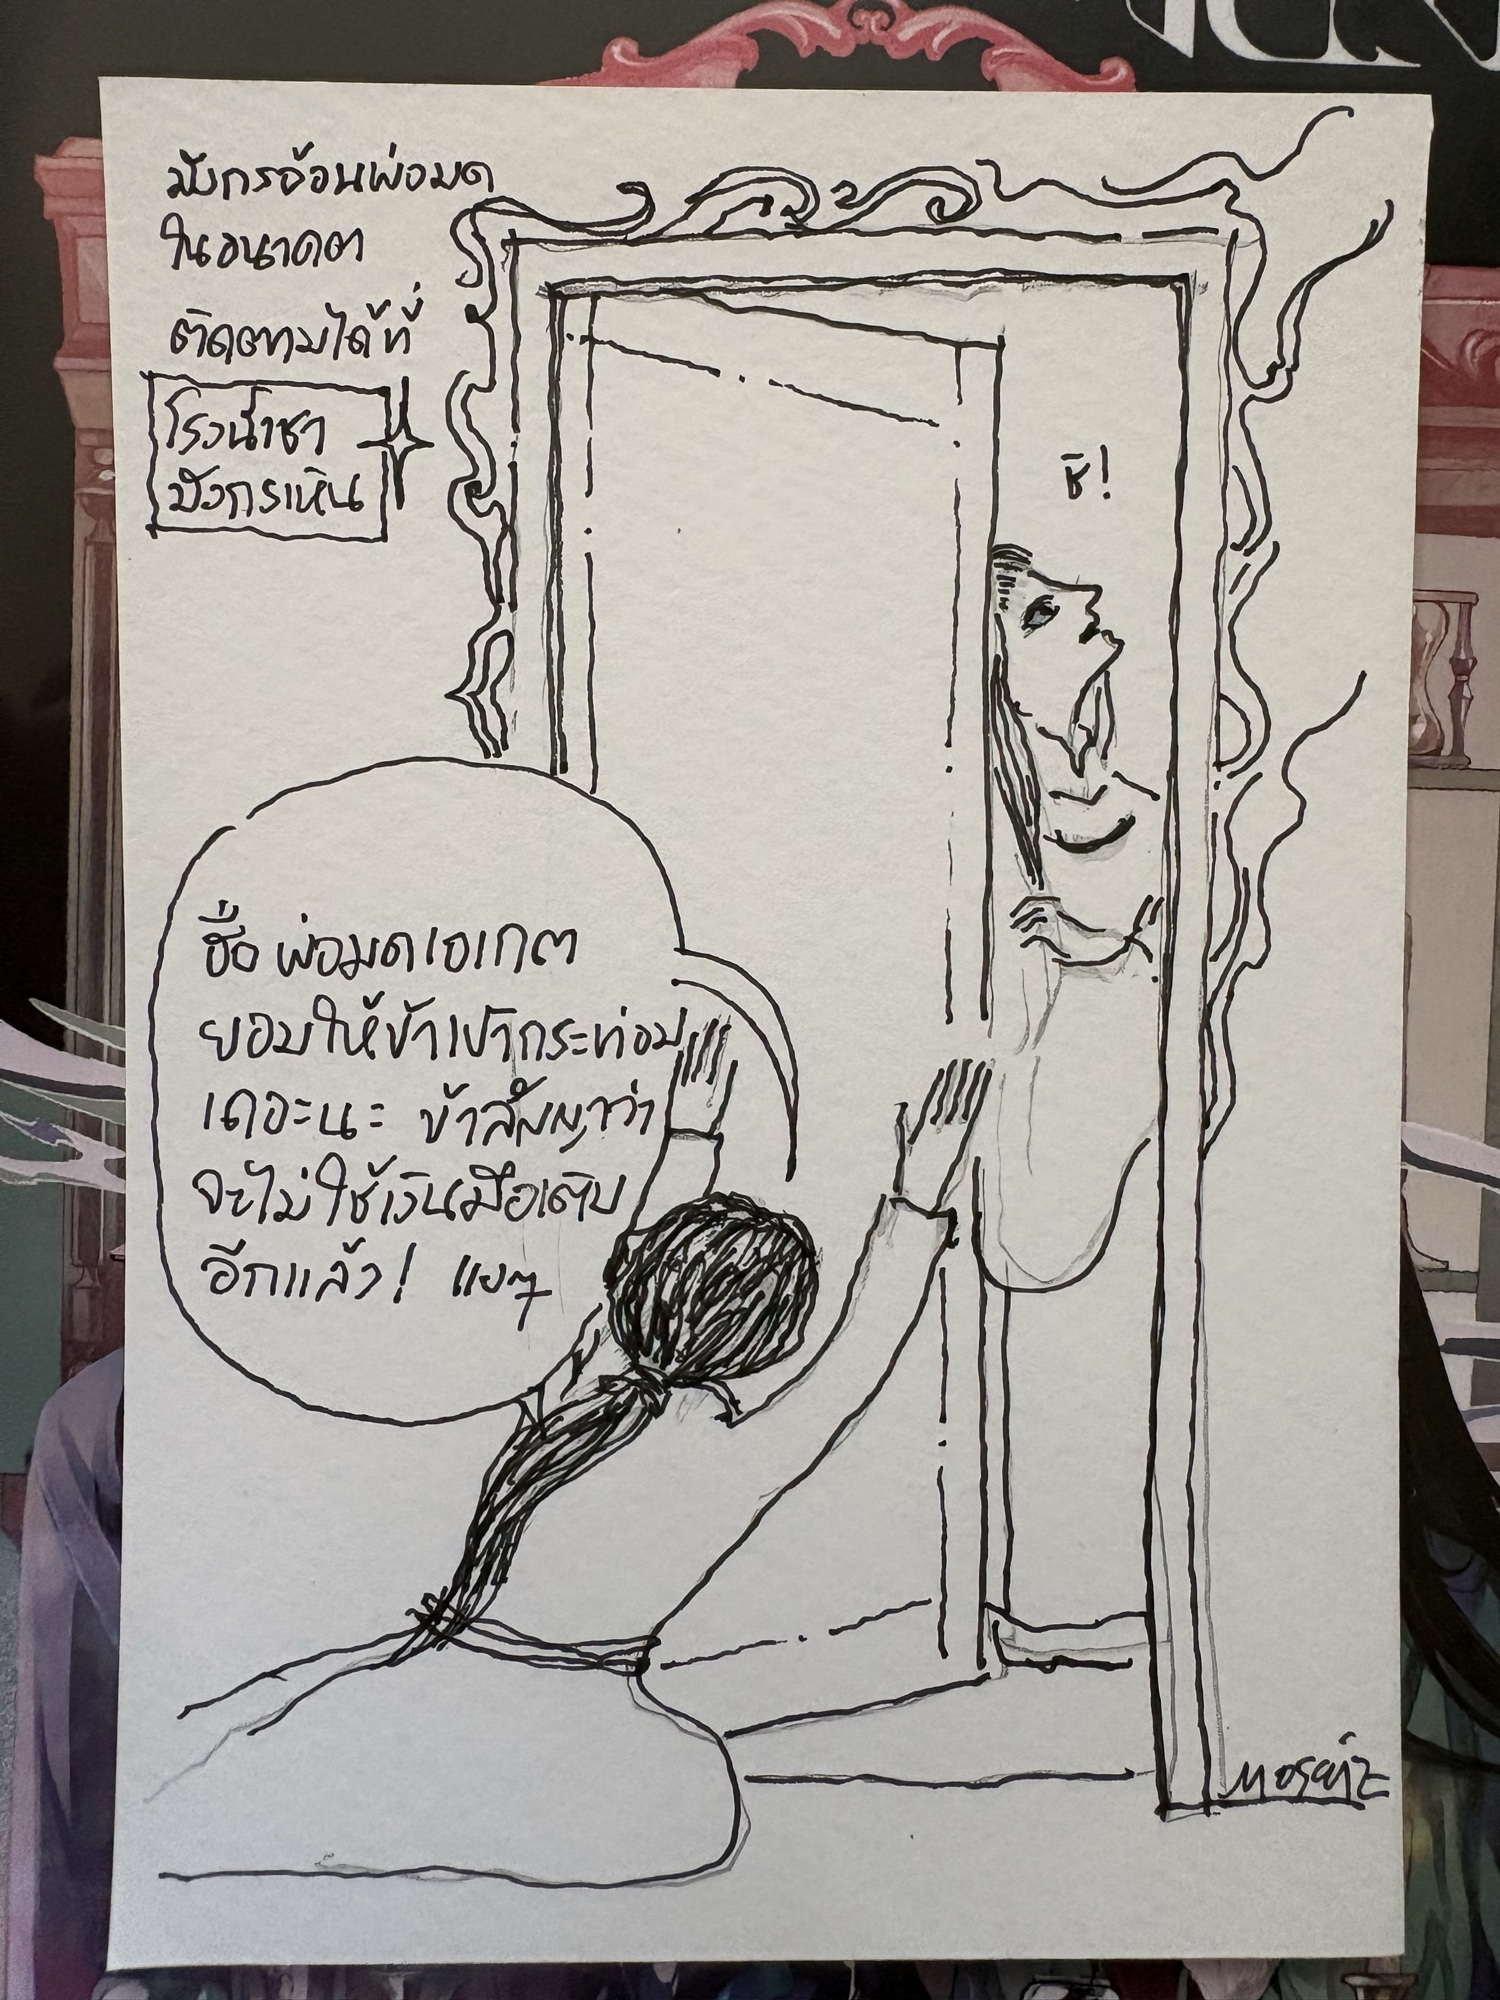 มังกรอ้อนพ่อมด
ในอนาคต
ติดตามได้ที่
โรงน้ำชา
มังกรเหิน
ชิ!
ฮื่อ พ่อมดเอเกต
ยอมให้ข้าเข้ากระท่อม
เถอะนะ ข้าสัญญาว่า
จะไม่ใช้เงินมือเติบ
อีกแล้ว! แงๆ
Mosaiz